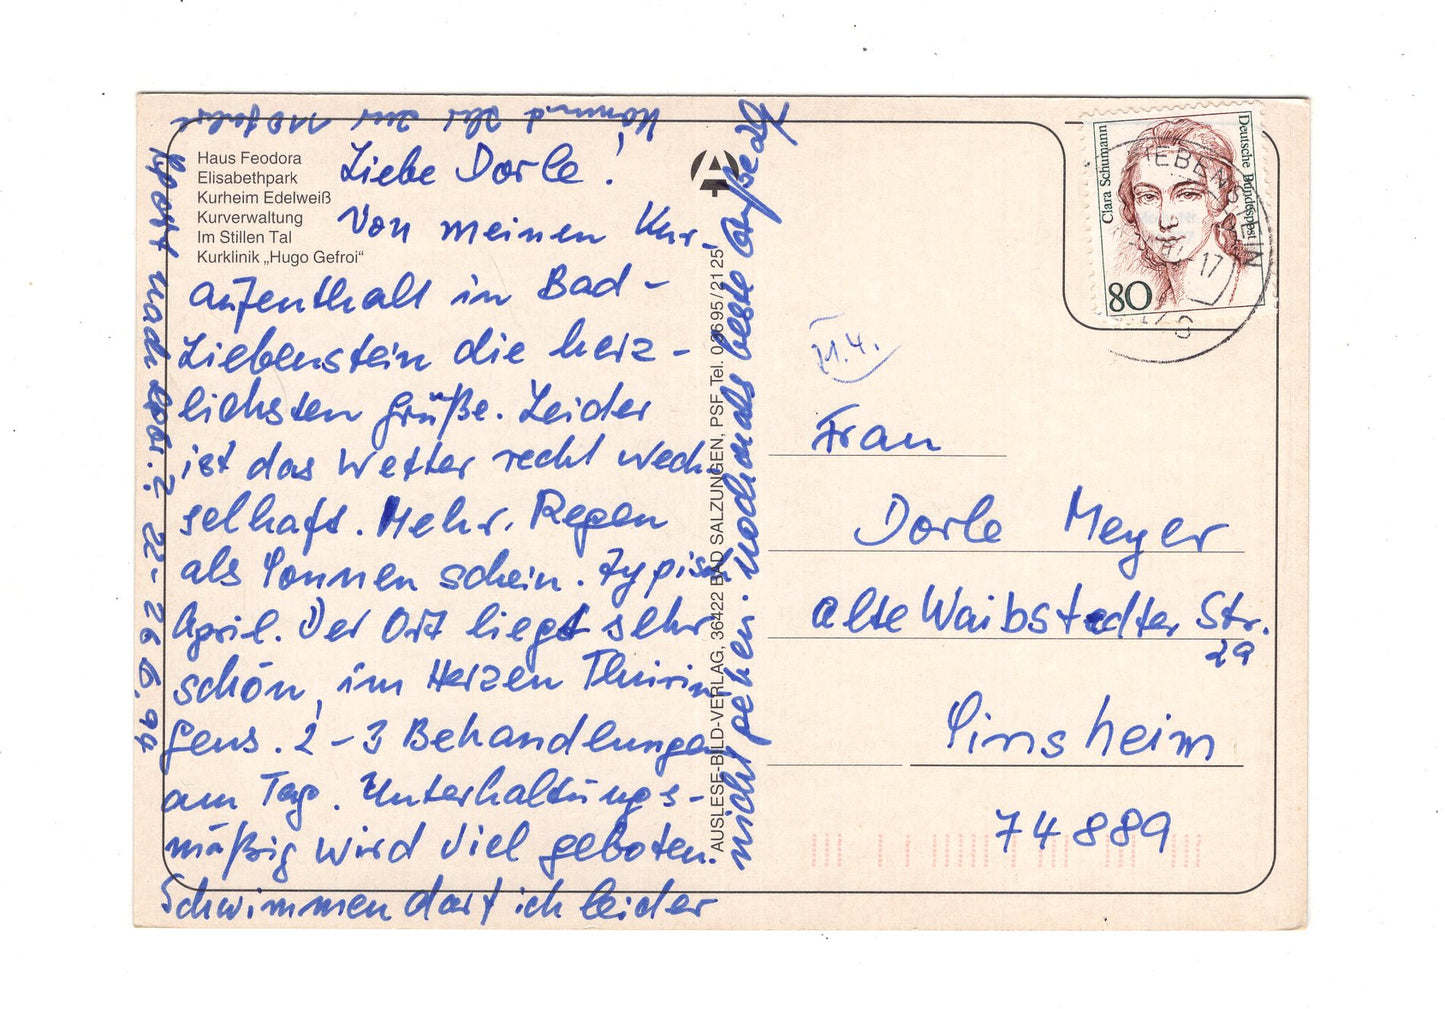 Haus Feodora
Elisabethpark
Kurheim Edelweiß
Kurverwaltung
Im Stillen Tal
Kurklinik „Hugo Gefroi“
Liebe Dorle!
Von meinen Kur-
aufenthalt in Bad-
Liebenstein die herz-
lichsten Grüße. Leider
ist das Wetter recht wech-
selhaft. Mehr Regen
als Sonnenschein. Typisch
April. Der Ort liegt sehr
schön, im Herzen Thürin
gens. 2-3 Behandlungen
am Tag. Unterhaltungs-
mäßig wird viel geboten.
Schwimmen darf ich leider
nicht gehen. nochmals beste Grüße
Kommt Ihr zur 110 Jahre
nach
22-26.6.94
AUSLESE-BILD-VERLAG, 36422 BAD SALZUNGEN, PSF, Tel. 03695/2125
Clara Schumann
Deutsche Bundespost
80
LIEBENSTEIN
17
21.4.
Frau
Dorle Meyer
alte Waibstadter Str.
29
Sinsheim
74889